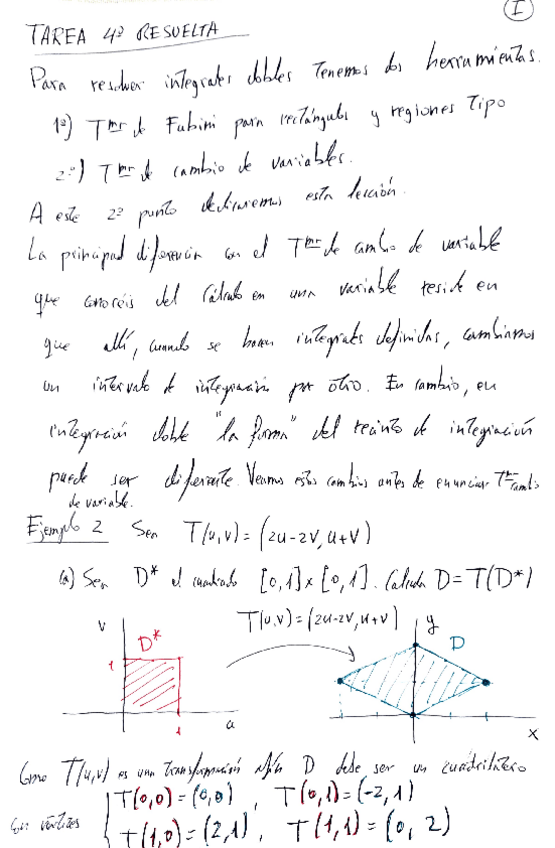 I
TAREA 4ª RESUELTA
Para resolver integrales dobles Tenemos dos herramientas.
1º) Tma de Fubini para rectángulos y regiones Tipo
2º) Tma de cambio de variables.
A este 2º punto dedicaremos esta lección.
La principal diferencia con el Tma de cambio de variable
que conocéis del Cálculo en una variable reside en
que allí, cuando se hacen integrales definidas, cambiamos
un intervalo de integración por otro. En cambio, en
integración doble "la forma" del recinto de integración
puede ser diferente. Veamos estos cambios antes de enunciar Tma cambio
de variable.
Ejemplo 2 Sea T(u,v) = (2u-2v, u+v)
(a) Sea D* el cuadrado [0,1]x[0,1]. Calcula D=T(D*)
T(u,v)=(2u-2v,u+v)
v D* 1 1 u
y D x
Como T(u,v) es una transformación afín D debe ser un cuadrilátero
con vértices T(0,0)=(0,0), T(0,1)=(-2,1)
T(1,0)=(2,1), T(1,1)=(0,2)